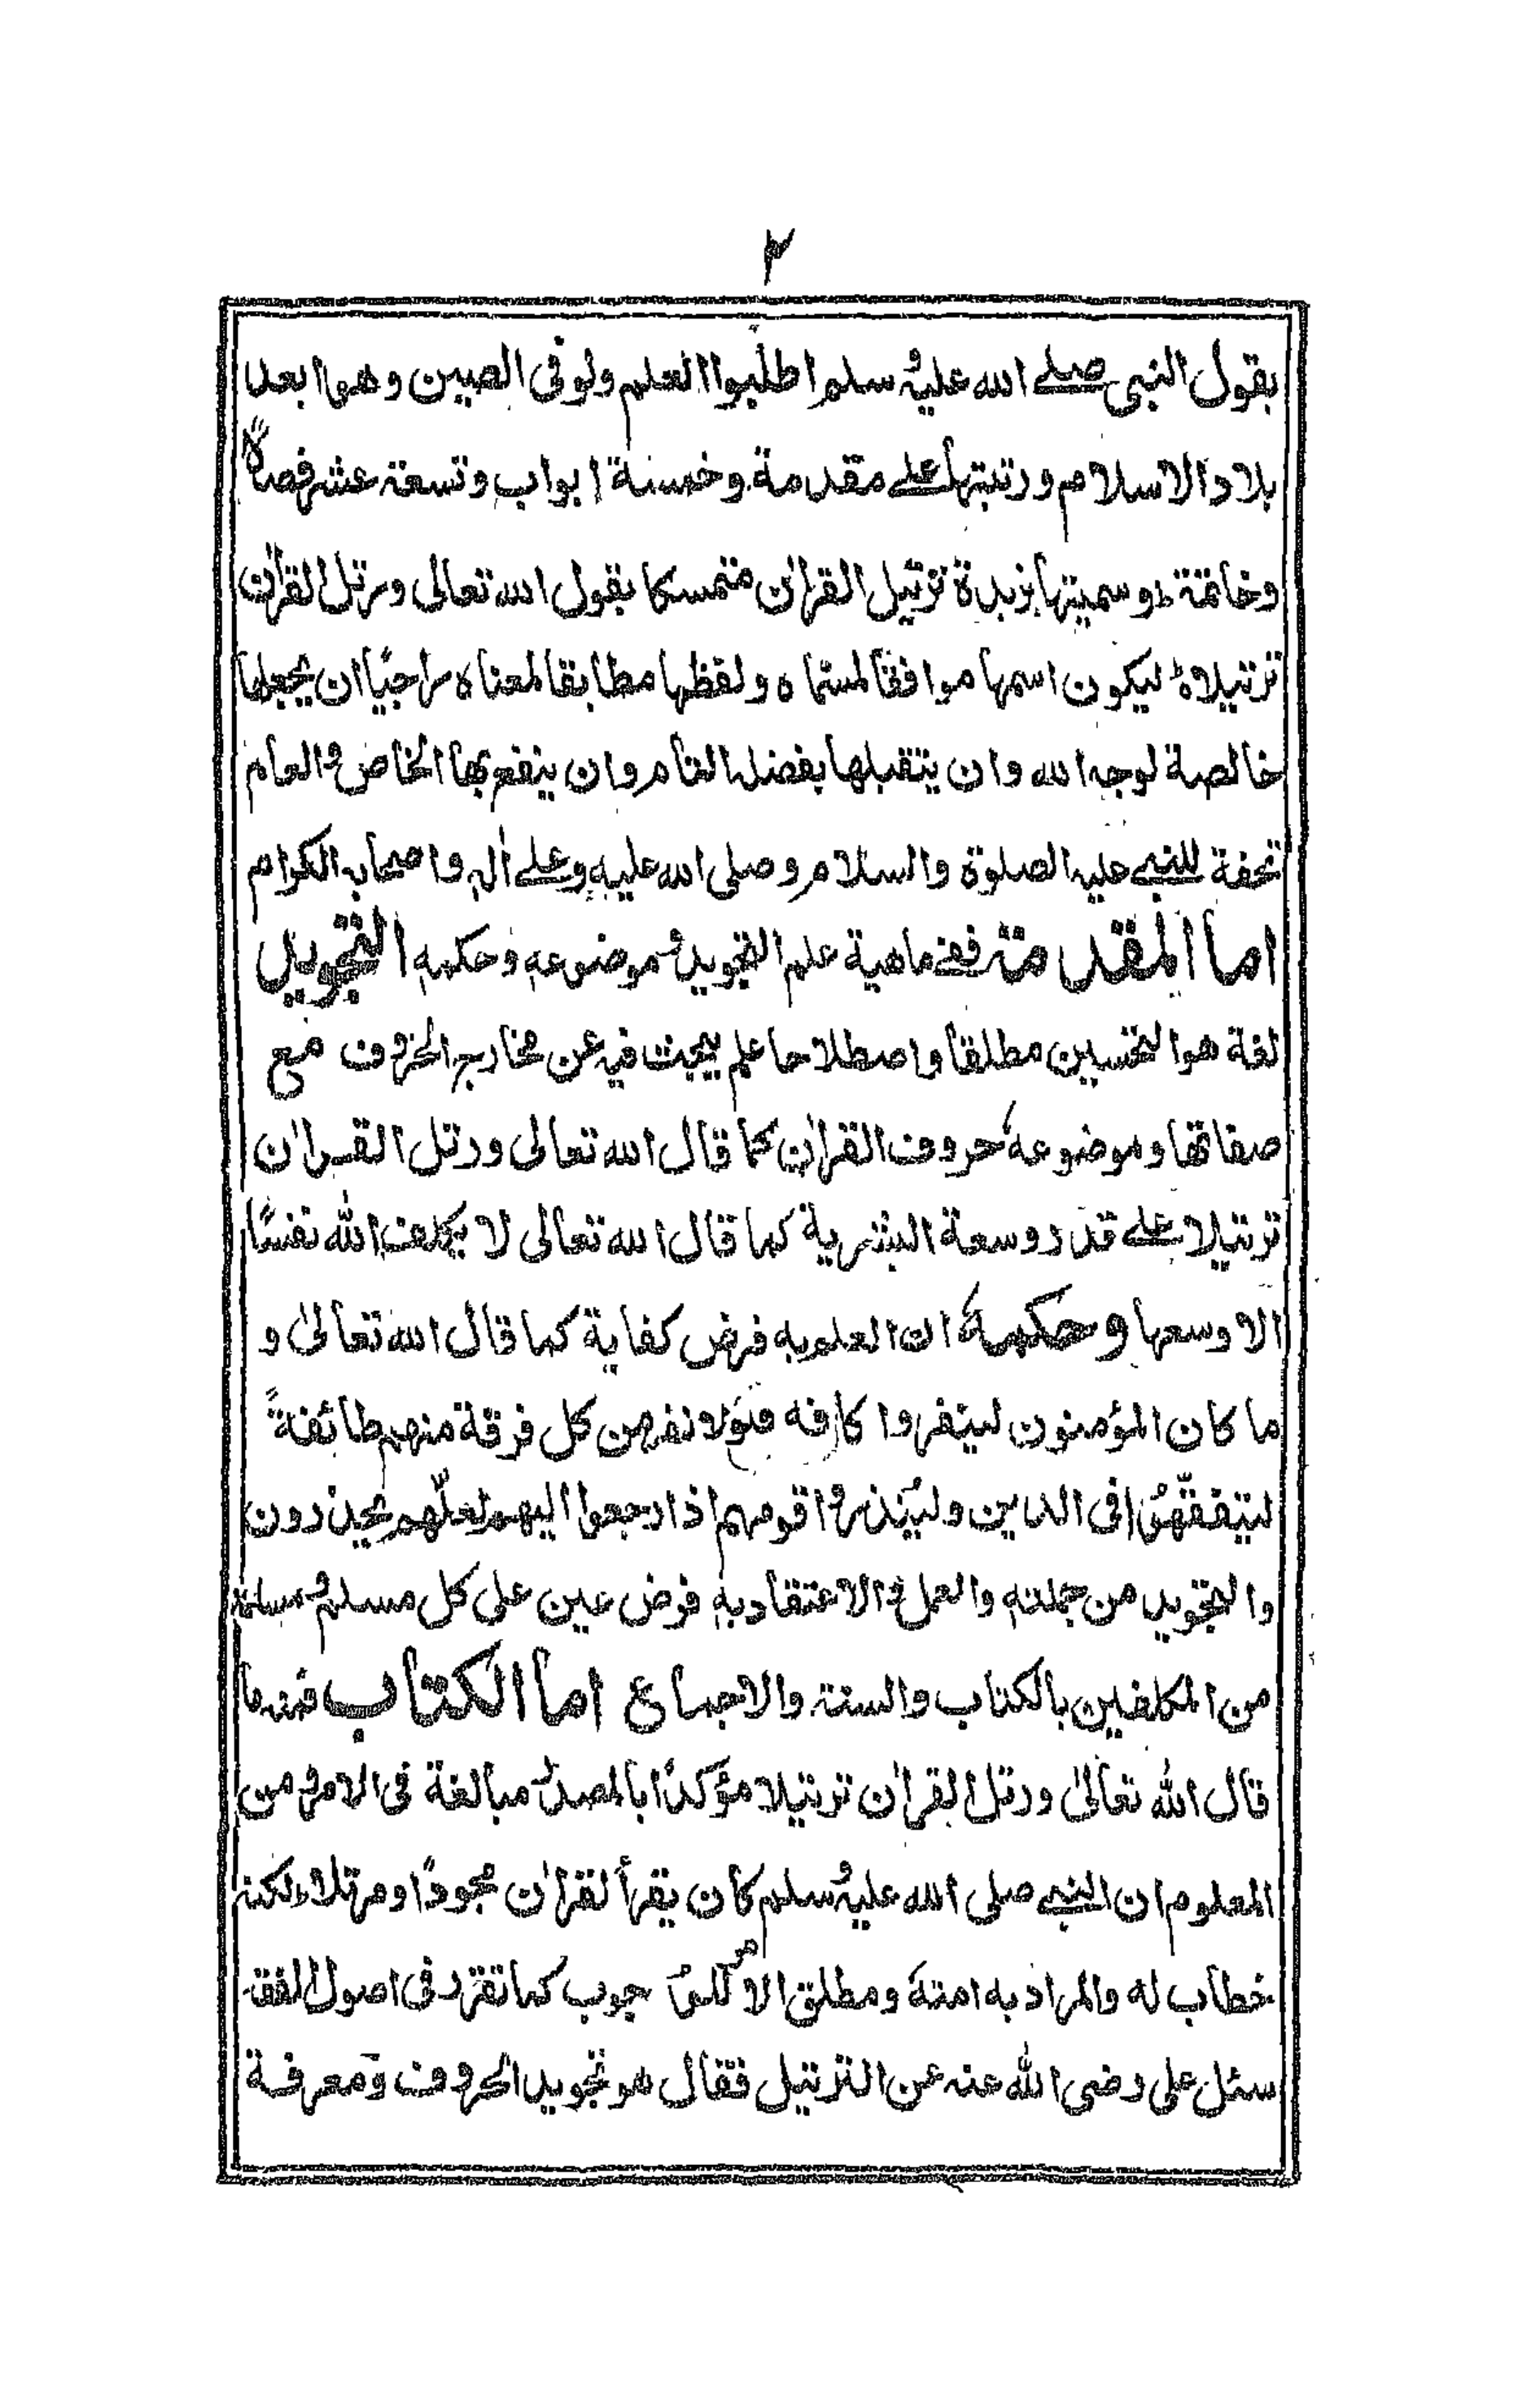 ٣
بقول النبى صلے الله عليه و سلم اطلبوا العلم ولو فى الصين وهو ابعد
بلاد الاسلام ورتبتها علے مقدمة وخمسة ابواب وتسعة عشر فصلا
وخاتمة وسميتها بزبدة ترتيل القرأن متمسكا بقول الله تعالى ورتل القرأن
ترتيلاه ليكون اسمها موافقا لمسماه ولفظها مطابقا لمعناه راجيًا ان يجعلها
خالصة لوجه الله وان يتقبلها بفضله التام وان ينفع بها الخاص والعام
تحفة للنبے عليه الصلوة والسلام وصلى الله عليه وعلے أله واصحابه الكرام
اما المقدمة ففے ماهية علم التجويد و موضوعه وحكمه التجويد
لغة هو التحسين مطلقا واصطلاحا علم يبحث فيه عن مخارج الحروف مع
صفاتها وموضوعه حروف القرأن كما قال الله تعالى ورتل القرأن
ترتيلا علے قدر وسعة البشرية كما قال الله تعالى لا يكلف الله نفسًا
الا وسعها وحكمه ان العلم به فرض كفاية كما قال الله تعالىٰ و
ما كان المؤمنون لينفروا كافه فلولا نفر من كل فرقة منهم طائفةً
ليتفقّهُوا فى الدين وليُنذروا قومهم اذا رجعوا اليهم لعلّهم يحذرون
والتجويد من جملته والعمل و الاعتقاد به فرض عين على كل مسلم و مسلمة
من المكلفين بالكتاب والسنة والاجماع اما الكتاب فمنه ما
قال الله تعالىٰ ورتل القرأن ترتيلا مؤكدًا بالمصدر مبالغة فى الامر و من
المعلوم ان النبے صلى الله عليه و سلم كان يقرأ القرأن مجودًا ومرتلا ولكنه
خطاب له والمراد به امته ومطلق الامر للوجوب كما تقرر فى اصول الفقه
سئل على رضى الله عنه عن الترتيل فقال هو تجويد الحروف ومعرفة